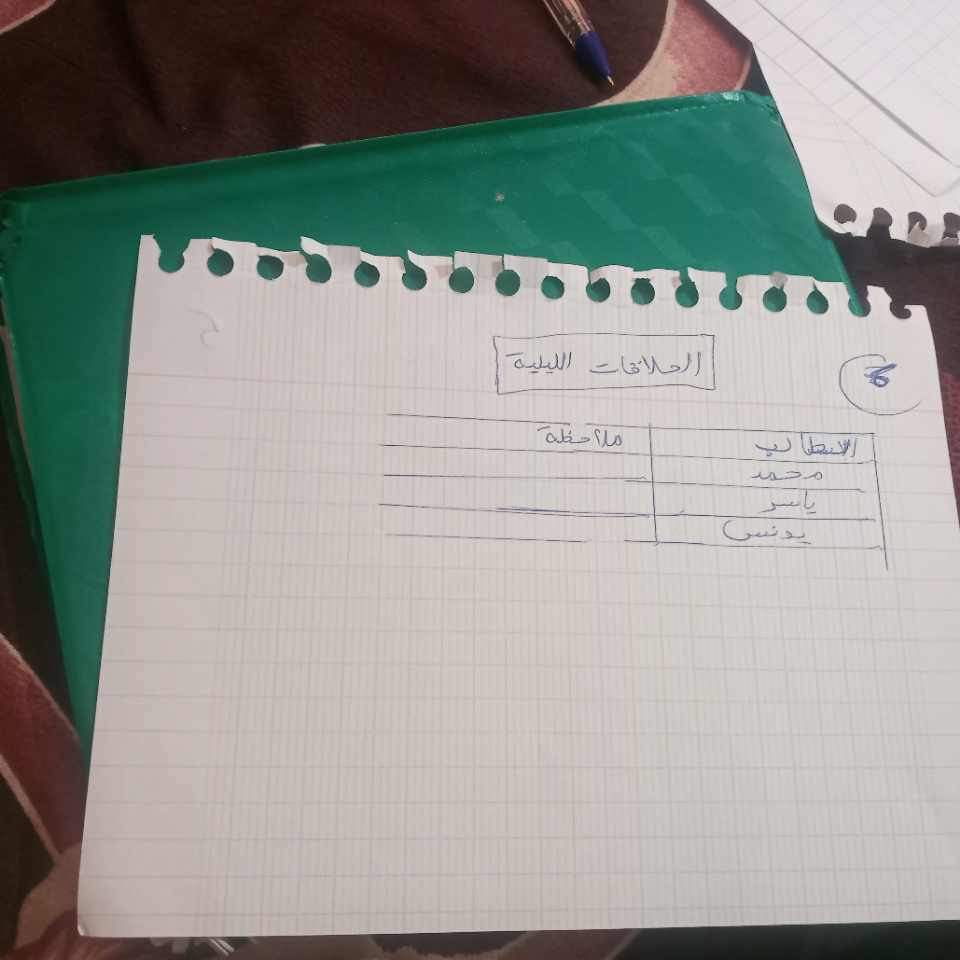 الحلاقات الليلية
6
الطالب ملاحظة
محمد
ياسر
يونس